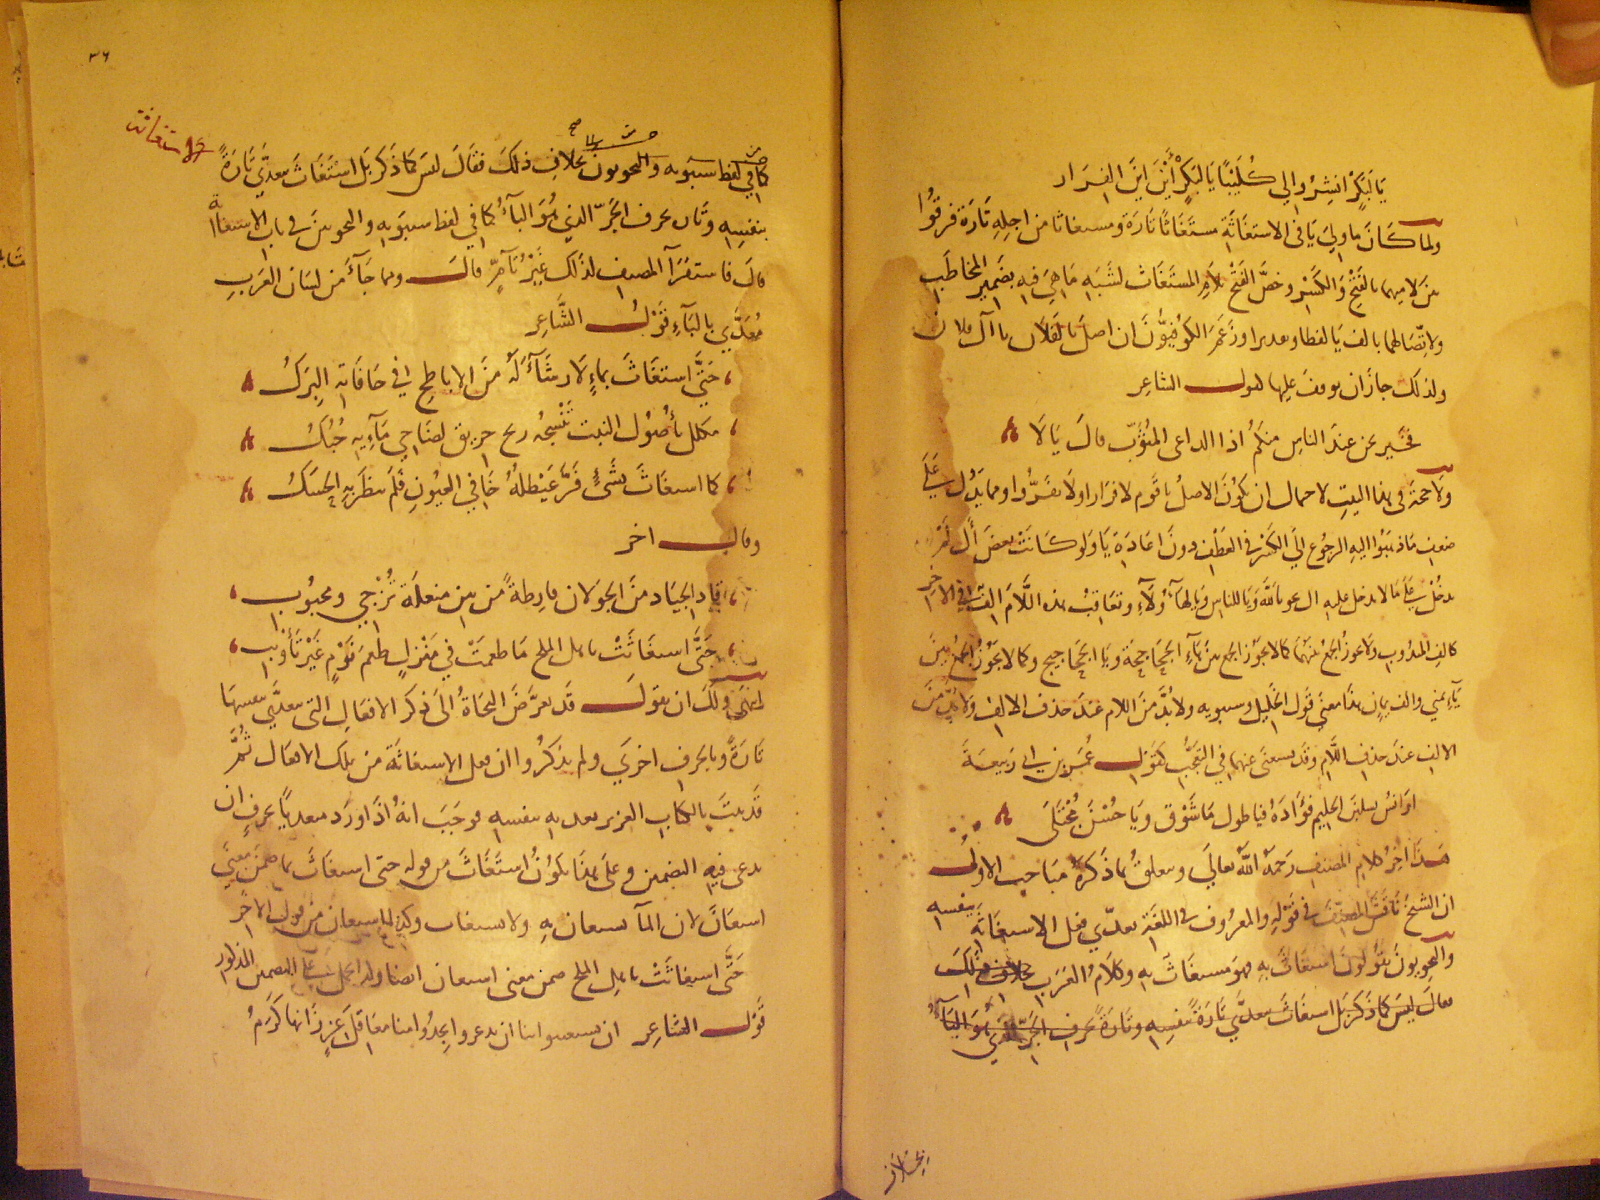 يَا لَبَكْرٍ انشِرُوا لي كُلَيْبًا يَا لَبَكْرٍ أَيْنَ ايْنَ الفِرَار
ولما كَانَ ما ولِيَ يَا فى الاستغَاثَةِ مستَغَاثًا تَارَةً ومستغاثا من اجلِهِ تَارَة فرقُوا
بين لاميهما بالفَتْحِ وَالكَسْرِ وخصَّ الفَتْح بلَامِ المستَغَاث لشَبَهِ مَا هِيَ فيهِ بضَمِيرِ المخاطَبِ
ولاتِّصَالهما بالف يَا لفظا وتقديرا وزَعَمَ الكوُفيُّونَ ان اصلَ يا لفُلَان يا آل فلان
ولذلك جازَ ان يوقفَ عليها لقول الشاعِر
فخَير نحن عندَ الناسِ منكُم اذا الداعى المثوّبُ قالَ يَا لَا
ولَا حجَةَ فى هذا البيتِ لاحتمال ان يكُونَ الاصلُ يا قَوم لا فرَار اولَا تفرُّوا ومما يَدُل عَلَى
ضعف مَا ذهبُوا اليهِ الرجُوع الَى الكَسْرِ في العَطفِ دونَ اعادَةِ يَا وَلو كانَتْ بعضَ أَل لمْ
تدخُل عَلَى مَا لا تدخل عليهِ ال نحو يا للهِ وَيَا للناسِ وَيَا لهآؤلَآءِ وتعَاقبُ هذه اللَّامَ الفٌ في الاخِرِ
كالفِ المندُوبِ ولَا يجوزُ الجمعُ بينَهُمَا كما لا يجوز الجمع بينَ يَآءِ الجحَاجحَة ويا الجحَاجيح وكما لا يجُوزُ الجمع بَينَ
يآءِ يَمَني والف يمانٍ هذَا معنى قَول الخليلِ وسيبويه ولَا بُدَّ منَ اللام عندَ حذف الالفِ ولَا بُدَّ منَ
الالفِ عندَ حذفِ اللَّامِ وقَد يستغنَى عنهما في التعجُّبِ كقَولِ عُمَر بن ابى رَبيعَةَ
اوَانسُ يسلُبنَ الحليم فؤَادَهُ فيا طول مَا شَوْق ويَا حُسْنَ مُجْتَلَى
هَذَا آخِرُ كلام المُصَنفِ رَحمَهُ اللهُ تعالَى ويتعلقُ بما ذَكرهُ مَبَاحِث الاولُ
ان الشيخ نَاقَشَ المصنّفَ في قَوْلِهِ والمعرُوف في اللغَة تعدّي فعل الاستغاثَة بنفسه
والنحويونَ يَقُولُونَ استغَاثَ بهِ فهوَ مستغَاث به وكلَامُ العَرَبِ بخلافِ ذلِكَ
فقالَ ليسَ كما ذَكَرَ بَل استغَاثَ يتعدَّي تَارَةً بنفسِهِ وتَارَةً بحرف الجَرّ الذي هُوَ البَآءُ
بخلاف
٣٦
الاستغاثة
كما في لفظ سيبَويه والنحويونَ بخلافِ ذلكَ فقَالَ ليسَ كمَا ذكَرَ بَل استَغَاثَ يتعدَّي تَارَةً
بنفسِهِ وتَارَة بحرف الجَرّ الذي هُوَ البآءُ كما في لفظ سيبَوَيهِ والنحويين في باب الاستغاثة
قالَ فاستقرَآءُ المصنف لذلك غَيْرُ تَآمٍّ قالَ ومما جَآءَ من لسَان العَرَبِ
مُعَدًّى بالبَآءِ قَوْلُ الشَّاعِر
حَتَّى استغَاثَ بمَاءٍ لَا رشآءَ لَهُ منَ الاباطِحِ في حَافَاتِهِ البِرَكُ
مكلل بأُصُول النبت تَنسِجُهُ ريح خريق لضَاحِي مَآءِيهِ حُبُكُ
كما استغَاثَ بِشَيْءٍ فَزُّ غَيْطلَةٍ خَافي العيُونِ فَلَم ينظَر بهِ الحَسَكُ
وقالَ اخر
نقادِ الجيَاد منَ الجَولان قارِظةً من بين منعلَة تُزْجي ومجنُوبِ
حَتَّى استغَاثَتْ باهل الملح مَا طعمَتْ في مَنزلٍ طعمَ نَوْمٍ غَيْرَ تَأْويبِ
انتهَى ولَكَ ان يقولَ قَد تعرَّضَ النحَاةُ الَى ذكرِ الافعَالِ التى تتعدَّي بنفسهَا
تَارَةً وبالحَرفِ اخرَي ولم يذكرُوا ان فعل الاستغاثَة من تلكَ الافعَال ثُمَّ
قَد ثبتَ بالكتابِ العزيز تعديهِ بنفسهِ فوَجَبَ انهُ اذَا ورَدَ متعديًا بحرفٍ ان
يدعى فيهِ التضمين وعلَى هذَا يكُونُ استَغَاثَ من قولهِ حتى استغاثَ بما ضمنَ معنَى
استعَانَ لان المآ يستعان بهِ ولا يستغاث وكذا استعان من قولِ الآخَر
حَتَّى استغاثَتْ باهلِ الملح ضمن معنى استعان ايضا ولهُ الحملُ عَلَى التضمين المذكور
قَوْل الشاعِر ان تستغيثوا بنا ان تدعروا تجدُوا منا معَاقِلَ عِزٍّ زَانهَا كَرَمُ